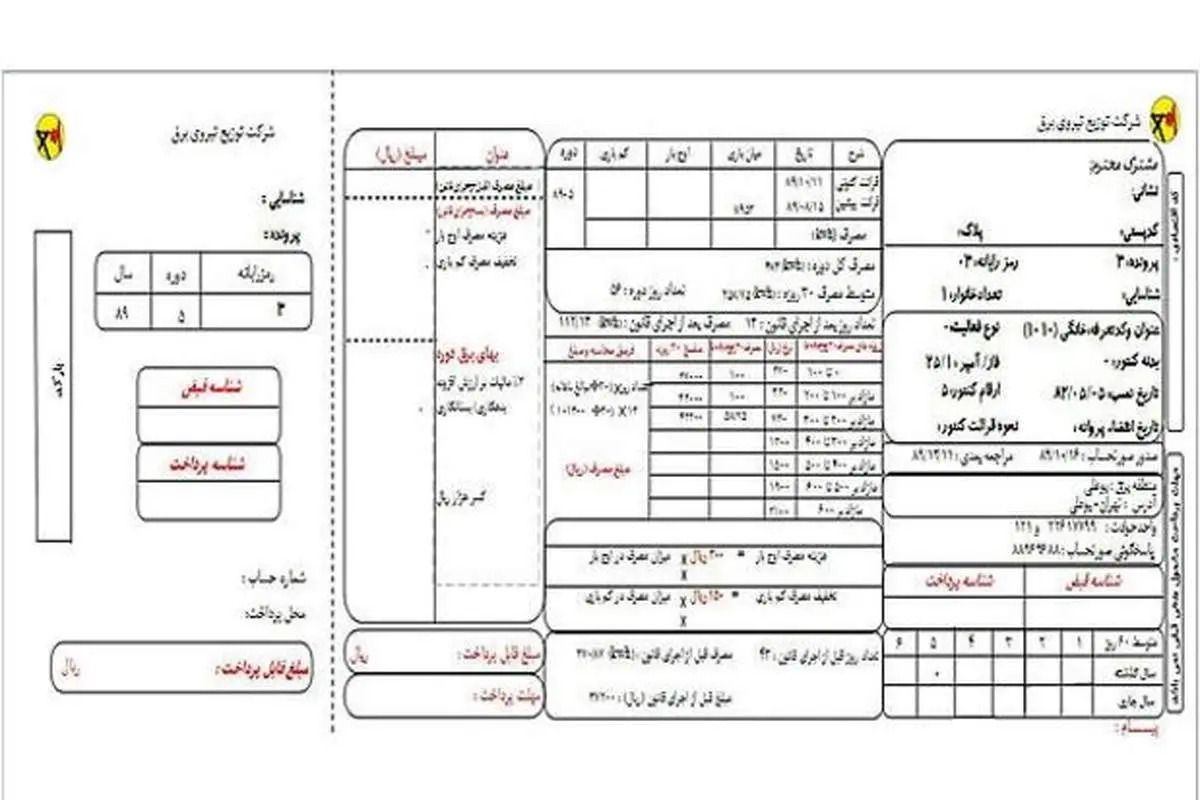 شرکت توزیع نیروی برق
مشترک محترم:
نشانی:
کدپستی: پلاک:
پرونده: ۳ رمز رایانه: ۰۳
شناسایی: تعداد خانوار: 1
عنوان و کد تعرفه: خانگی (1010) نوع فعالیت: -
بدنه کنتور: - فاز/ آمپر: ۲۵/1
تاریخ نصب: ۸۲/۰۵/۰۵ ارقام کنتور: ۵
تاریخ انقضاء پروانه: نحوه قرائت کنتور:
صدور صورتحساب: ۸۹/۱۰/۱۶ مراجعه بعدی: ۸۹/۱۲/۱۱
منطقه برق: بوعلی
آدرس: تهران-بوعلی
واحد حوادث: ۲۲۶۱۷۷۹۹ و ۱۲۱
پاسخگوئی صورتحساب: ۸۸۹۶۹۶۸۸
شناسه قبض شناسه پرداخت
متوسط ۶۰ روز ۱ ۲ ۳ ۴ ۵ ۶
سال گذشته ۰
سال جاری
پیـــام:
کد اقتصادی:
شرح تاریخ میان باری اوج بار کم باری دوره
قرائت کنونی ۸۹/۱۰/۱۱ ۸۹-۵
قرائت پیشین ۸۹/۰۸/۱۵
مصرف (kwh)
مصرف کل دوره: (kwh)
متوسط مصرف ۳۰ روزه: (kwh) تعداد روز دوره: ۵۶
تعداد روز بعد از اجرای قانون: ۱۳ مصرف بعد از اجرای قانون: (kwh) ۱۱۲/۱۳
نرخ(ریال) مبلغ ۳۰ روزه فرمول محاسبه و مبلغ
۰ تا ۱۰۰ ۲۷۰ ۱۰۰ ۲۷۰۰۰
مازاد بر ۱۰۰ تا ۲۰۰ ۱۰۰
مازاد بر ۲۰۰ تا ۳۰۰
مازاد بر ۳۰۰ تا ۴۰۰
مازاد بر ۴۰۰ تا ۵۰۰ ۱۵۰۰
مازاد بر ۵۰۰ تا ۶۰۰ ۱۹۰۰
مازاد بر ۶۰۰ ۲۱۰۰
مبلغ مصرف (ریال)
هزینه مصرف اوج بار = ۳۰۰ ریال X میزان مصرف در اوج بار
X
تخفیف مصرف کم باری = ۱۵۰ ریال X میزان مصرف در کم باری
X
تعداد روز قبل از اجرای قانون: ۴۳ مصرف قبل از اجرای قانون: (kwh)
مبلغ قبل از اجرای قانون (ریال):
عنوان مبلغ (ریال)
هزینه مصرف اوج بار
تخفیف مصرف کم باری
بهای برق دوره
۳٪ مالیات بر ارزش افزوده
بدهکاری/بستانکاری ۰
کسر هزار ریال
مبلغ قابل پرداخت: ریال
مهلت پرداخت:
شرکت توزیع نیروی برق
شناسایی:
پرونده:
رمز رایانه دوره سال
۳ ۵ ۸۹
شناسه قبض
شناسه پرداخت
بارکد
شماره حساب:
محل پرداخت:
مبلغ قابل پرداخت: ریال